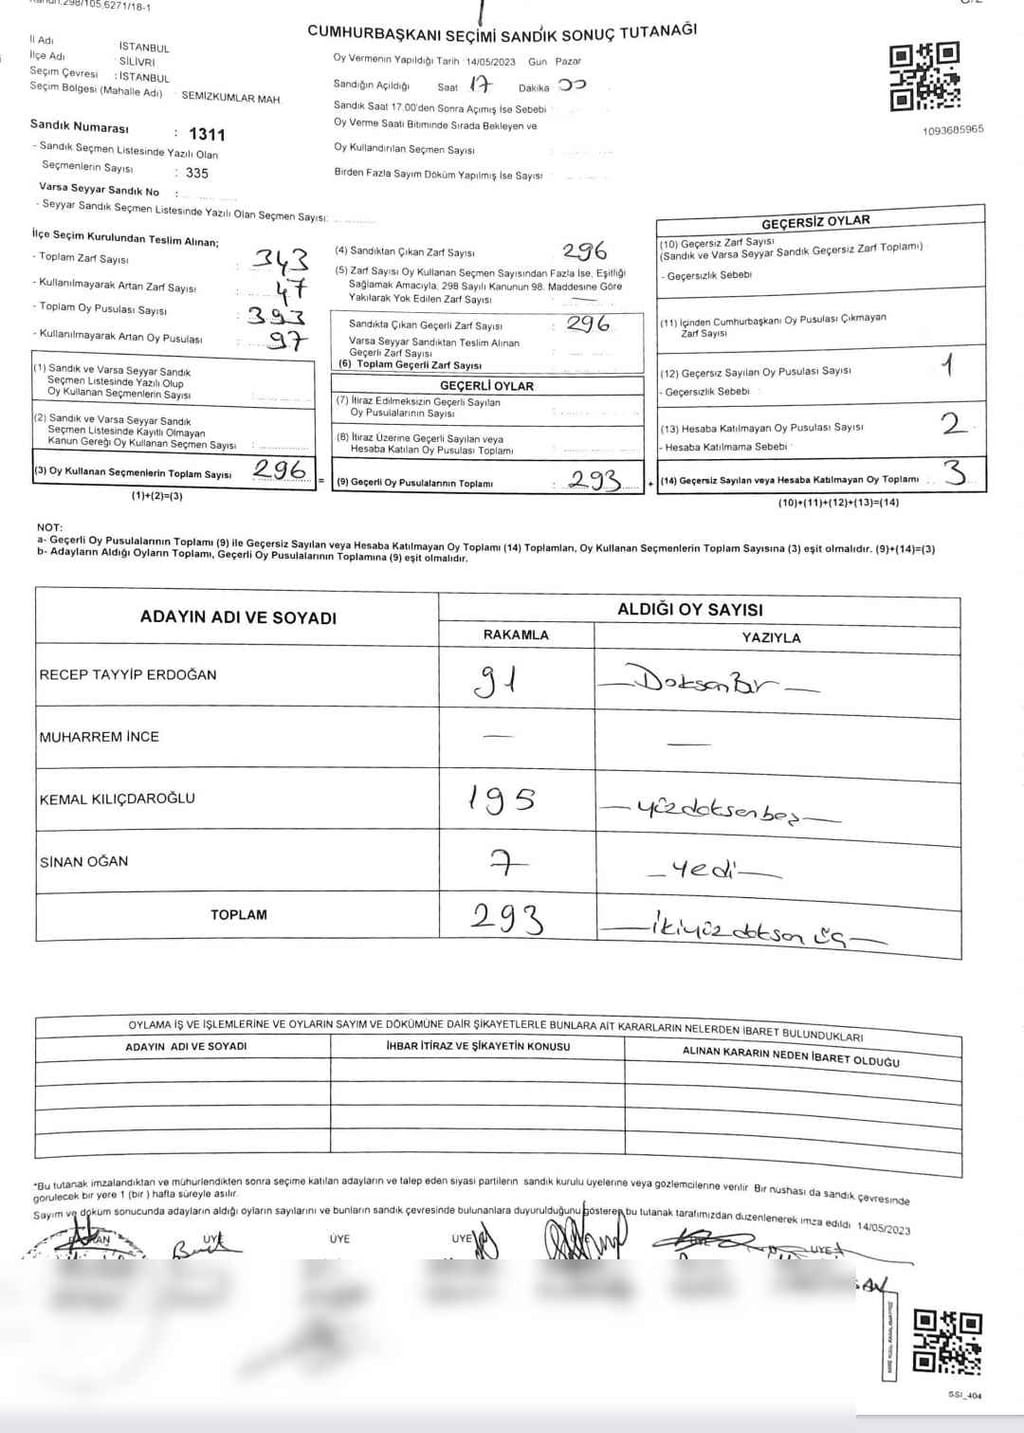 CUMHURBAŞKANI SEÇİMİ SANDIK SONUÇ TUTANAĞI
İl Adı İSTANBUL
İlçe Adı SİLİVRİ
Seçim Çevresi : İSTANBUL
Seçim Bölgesi (Mahalle Adı) : SEMİZKUMLAR MAH.
Sandık Numarası : 1311
- Sandık Seçmen Listesinde Yazılı Olan
Seçmenlerin Sayısı : 335
Varsa Seyyar Sandık No :
- Seyyar Sandık Seçmen Listesinde Yazılı Olan Seçmen Sayısı:
Oy Vermenin Yapıldığı Tarih : 14/05/2023 Gün Pazar
Sandığın Açıldığı Saat 17 Dakika 00
Sandık Saat 17.00'den Sonra Açımış İse Sebebi
Oy Verme Saati Bitiminde Sırada Bekleyen ve
Oy Kullandırılan Seçmen Sayısı
Birden Fazla Sayım Döküm Yapılmış İse Sayısı
1093685965
İlçe Seçim Kurulundan Teslim Alınan;
- Toplam Zarf Sayısı : 343
- Kullanılmayarak Artan Zarf Sayısı : 47
- Toplam Oy Pusulası Sayısı : 393
- Kullanılmayarak Artan Oy Pusulası : 97
(1) Sandık ve Varsa Seyyar Sandık
Seçmen Listesinde Yazılı Olup
Oy Kullanan Seçmenlerin Sayısı
(2) Sandık ve Varsa Seyyar Sandık
Seçmen Listesinde Kayıtlı Olmayan
Kanun Gereği Oy Kullanan Seçmen Sayısı :
(3) Oy Kullanan Seçmenlerin Toplam Sayısı 296
(1)+(2)=(3)
(4) Sandıktan Çıkan Zarf Sayısı 296
(5) Zarf Sayısı Oy Kullanan Seçmen Sayısından Fazla İse, Eşitliği
Sağlamak Amacıyla, 298 Sayılı Kanunun 98. Maddesine Göre
Yakılarak Yok Edilen Zarf Sayısı : —
Sandıkta Çıkan Geçerli Zarf Sayısı : 296
Varsa Seyyar Sandıktan Teslim Alınan
Geçerli Zarf Sayısı
(6) Toplam Geçerli Zarf Sayısı
GEÇERLİ OYLAR
(7) İtiraz Edilmeksizin Geçerli Sayılan
Oy Pusulalarının Sayısı
(8) İtiraz Üzerine Geçerli Sayılan veya
Hesaba Katılan Oy Pusulası Toplamı
= (9) Geçerli Oy Pusulalarının Toplamı : 293
GEÇERSİZ OYLAR
(10) Geçersiz Zarf Sayısı
(Sandık ve Varsa Seyyar Sandık Geçersiz Zarf Toplamı)
- Geçersizlik Sebebi
(11) İçinden Cumhurbaşkanı Oy Pusulası Çıkmayan
Zarf Sayısı
(12) Geçersiz Sayılan Oy Pusulası Sayısı 1
- Geçersizlik Sebebi
(13) Hesaba Katılmayan Oy Pusulası Sayısı 2
- Hesaba Katılmama Sebebi
+ (14) Geçersiz Sayılan veya Hesaba Katılmayan Oy Toplamı 3
(10)+(11)+(12)+(13)=(14)
NOT:
a- Geçerli Oy Pusulalarının Toplamı (9) ile Geçersiz Sayılan veya Hesaba Katılmayan Oy Toplamı (14) Toplamları, Oy Kullanan Seçmenlerin Toplam Sayısına (3) eşit olmalıdır. (9)+(14)=(3)
b- Adayların Aldığı Oyların Toplamı, Geçerli Oy Pusulalarının Toplamına (9) eşit olmalıdır.
ADAYIN ADI VE SOYADI ALDIĞI OY SAYISI
RAKAMLA YAZIYLA
RECEP TAYYİP ERDOĞAN 91 — DoksanBir —
MUHARREM İNCE — —
KEMAL KILIÇDAROĞLU 195 — yüzdoksanbeş —
SİNAN OĞAN 7 — yedi —
TOPLAM 293 — ikiyüzdoksan üç —
OYLAMA İŞ VE İŞLEMLERİNE VE OYLARIN SAYIM VE DÖKÜMÜNE DAİR ŞİKAYETLERLE BUNLARA AİT KARARLARIN NELERDEN İBARET BULUNDUKLARI
ADAYIN ADI VE SOYADI İHBAR İTİRAZ VE ŞİKAYETİN KONUSU ALINAN KARARIN NEDEN İBARET OLDUĞU
*Bu tutanak imzalandıktan ve mühürlendikten sonra seçime katılan adayların ve talep eden siyasi partilerin sandık kurulu üyelerine veya gözlemcilerine verilir. Bir nüshası da sandık çevresinde
görülecek bir yere 1 (bir) hafta süreyle asılır.
Sayım ve döküm sonucunda adayların aldığı oyların sayılarını ve bunların sandık çevresinde bulunanlara duyurulduğunu gösteren bu tutanak tarafımızdan düzenlenerek imza edildi. 14/05/2023
ÜYE ÜYE ÜYE ÜYE
SSI_404